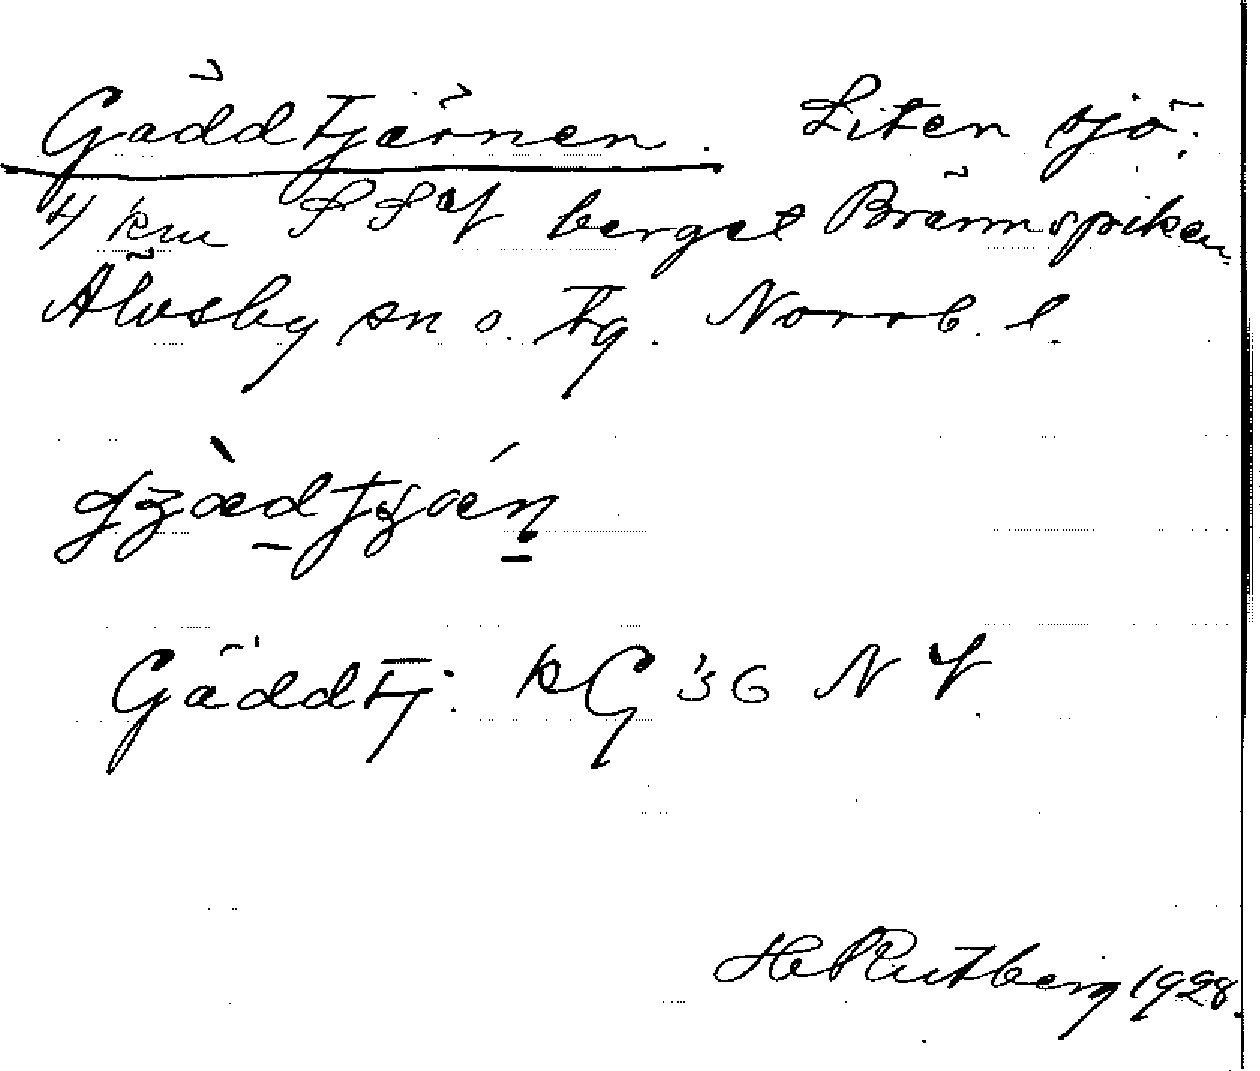 Gäddtjärnen. Liten sjö.
4 km SSV berget Brännspiken
Älvsby sn o. tg. Norrb. l.
Gäddtj. KG 36 NV
He Rutberg 1928.